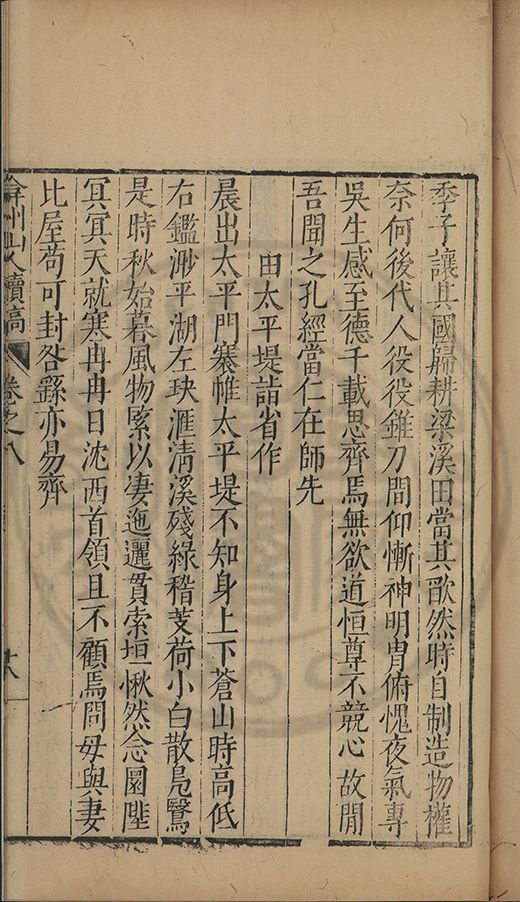 季子讓其國歸耕梁溪田當其歐然時自制造物權
奈何後代人役役錐刀間仰慚神明胄俯愧夜氣專
吳生感至德千載思齊焉無欲道恒尊不競心故閒
吾聞之孔經當仁在師先
由太平堤詣省作
晨出太平門褰帷太平堤不知身上下蒼山時高低
右鑑渺平湖左玦滙清溪殘綠稽芰荷小白散鳧鷖
是時秋始暮風物緊以凄迤邐貫索垣愀然念園陛
冥冥天就寒冉冉日沈西首領且不顧焉問毋與妻
比屋苟可封咎繇亦易齊
弇州山人續稿 卷之八